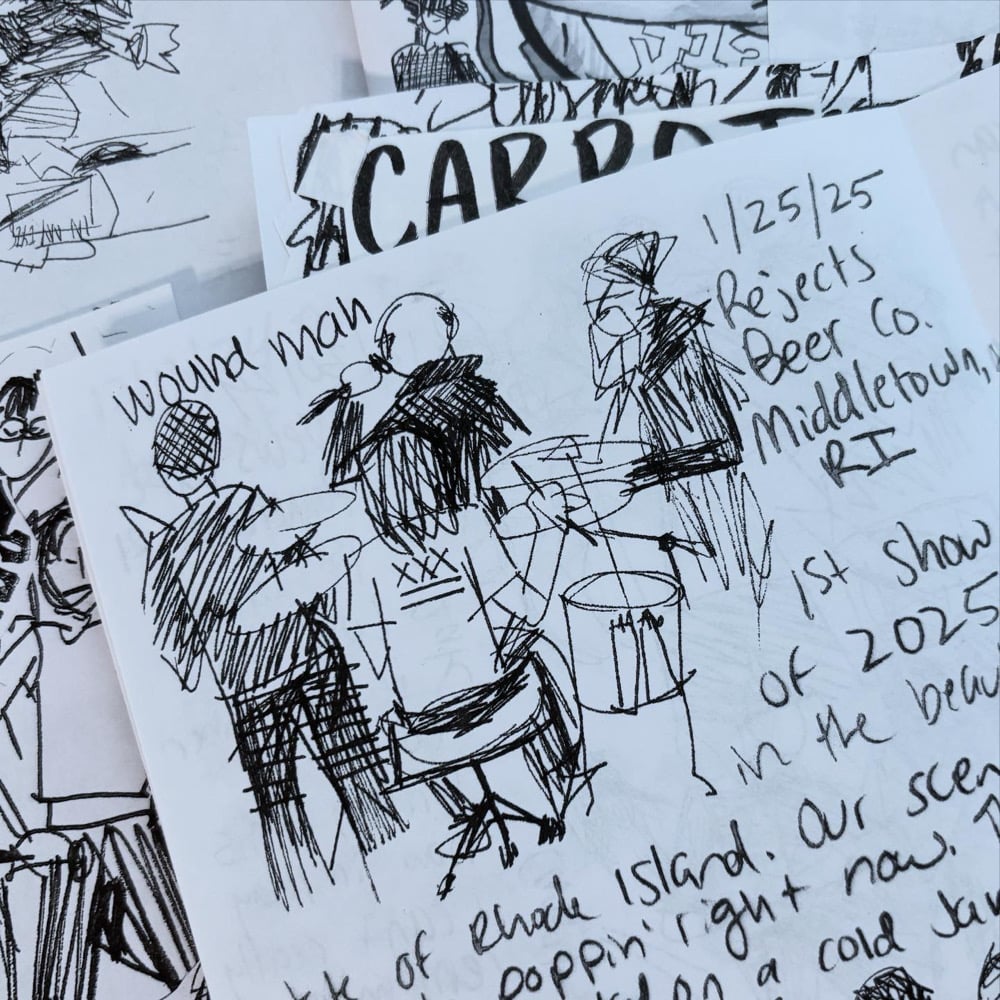 CARROT
wound man
1/25/25
Rejects
Beer Co.
Middletown,
RI
XXX
1st show
of 2025
in the
of Rhode Island. Our
poppin' right now.
on a cold